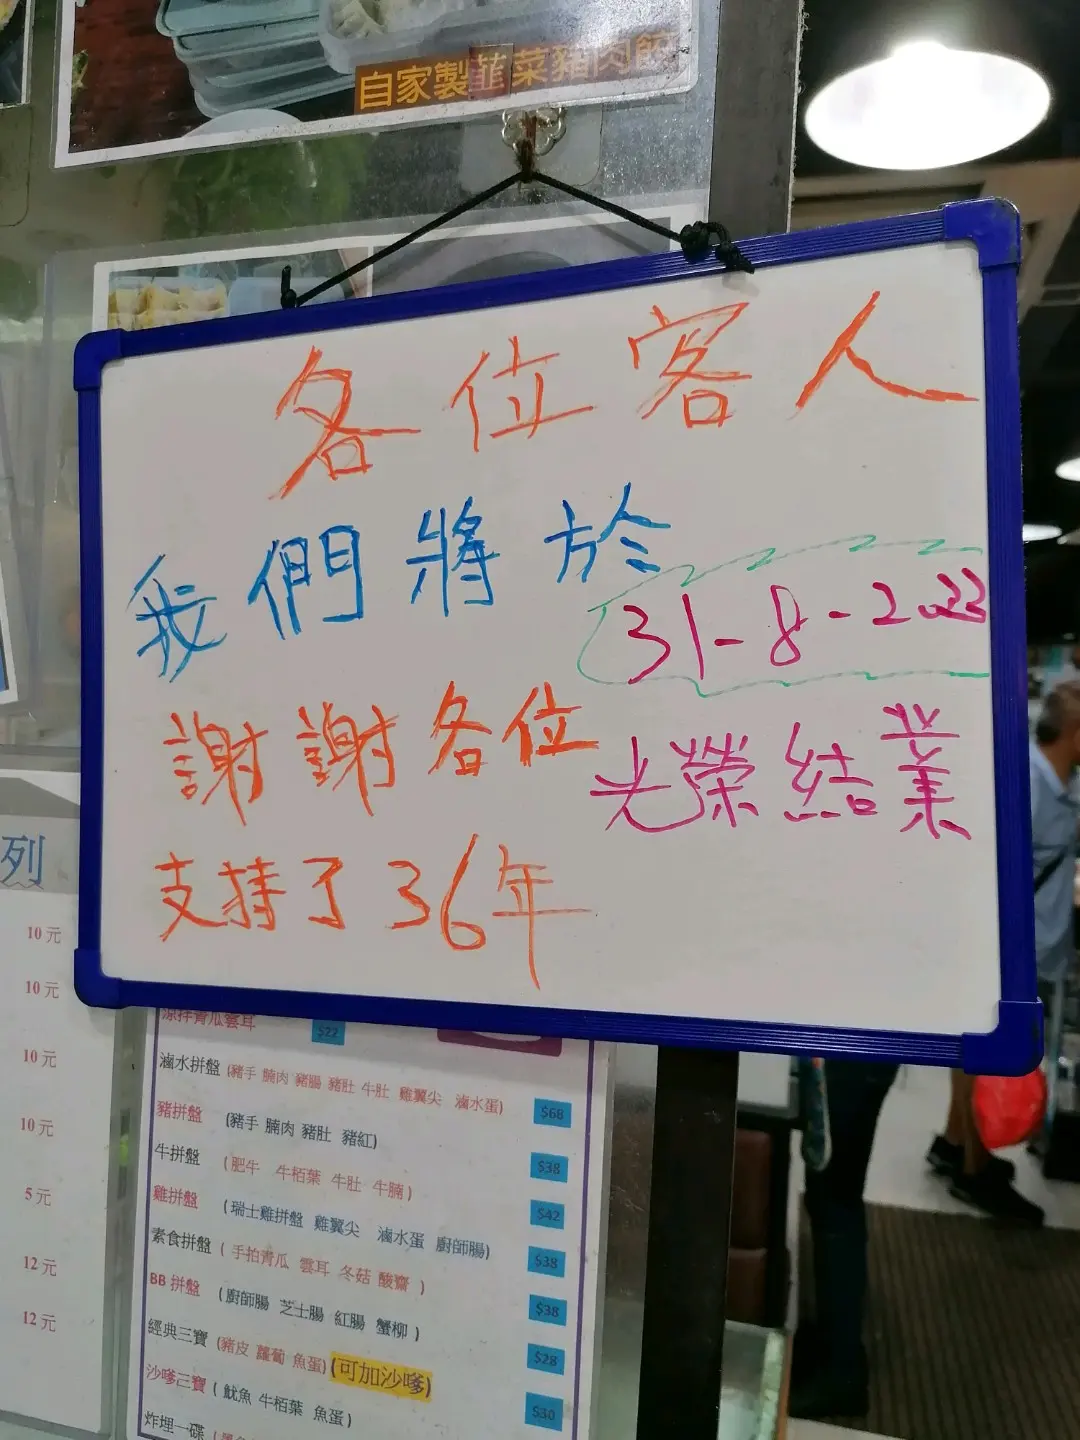 自家製韮菜豬肉餃
各位客人
我們將於
31-8-2023
謝謝各位
光榮結業
支持了36年
列
10元
10元
10元
10元
5元
12元
12元
涼拌青瓜雲耳 $22
滷水拼盤 (豬手 腩肉 豬腸 豬肚 牛肚 雞翼尖 滷水蛋) $68
豬拼盤 (豬手 腩肉 豬肚 豬紅) $38
牛拼盤 (肥牛 牛栢葉 牛肚 牛腩) $42
雞拼盤 (瑞士雞拼盤 雞翼尖 滷水蛋 廚師腸) $38
素食拼盤 (手拍青瓜 雲耳 冬菇 酸齋) $38
BB拼盤 (廚師腸 芝士腸 紅腸 蟹柳) $28
經典三寶 (豬皮 蘿蔔 魚蛋) (可加沙嗲) $30
沙嗲三寶 (魷魚 牛栢葉 魚蛋)
炸埋一碟